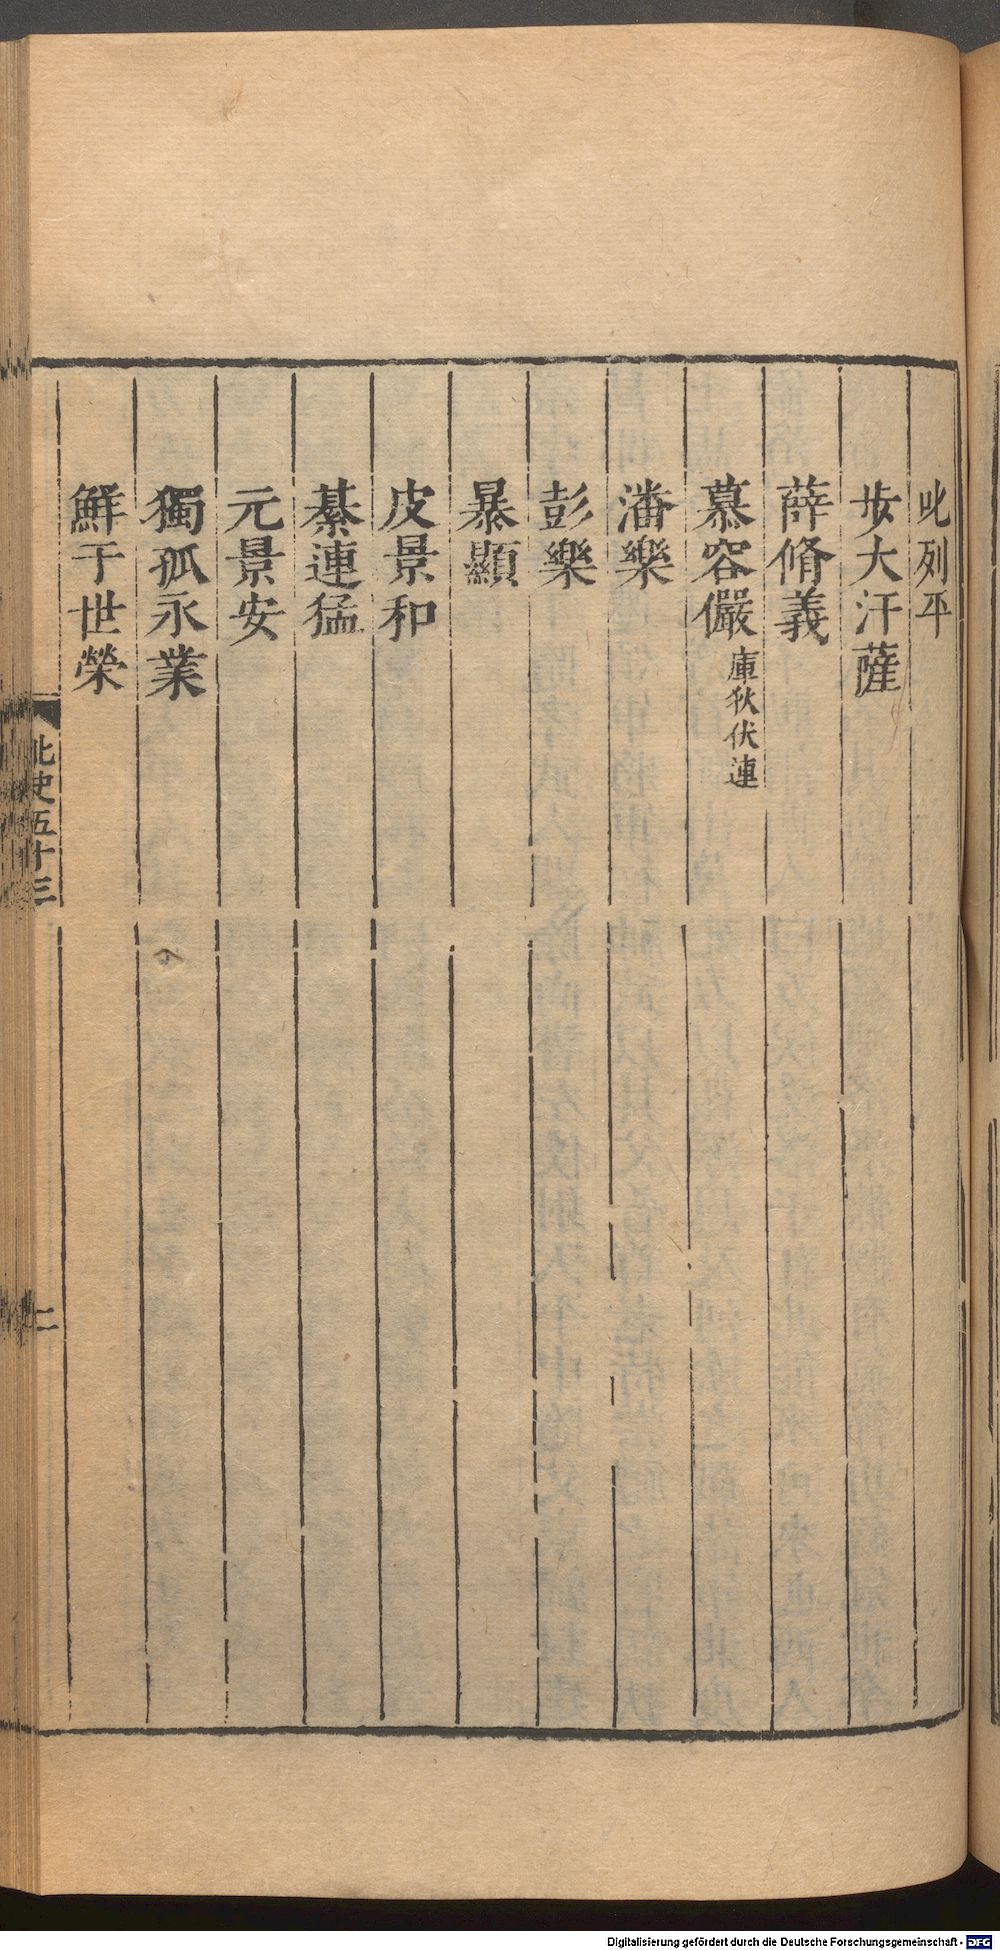 叱列平
步大汗薩
薛脩義
慕容儼 庫狄伏連
潘樂
彭樂
暴顯
皮景和
綦連猛
元景安
獨孤永業
鮮于世榮
北史五十三
二
Digitalisierung gefördert durch die Deutsche Forschungsgemeinschaft - DFG